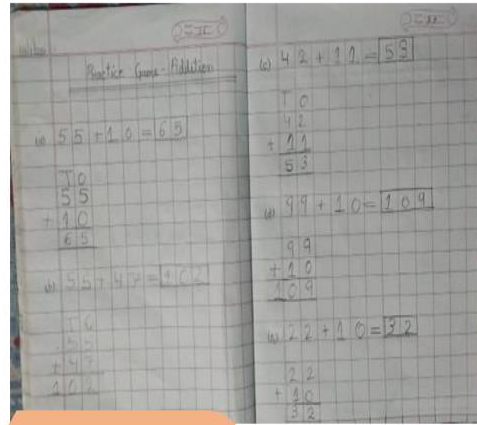 Practice Game - Addition
(a) 55+10=65
TO
55
+10
65
(b) 55+47=102
TO
55
+47
102
(c) 42+11=53
TO
42
+11
53
(d) 99+10=109
99
+10
109
(e) 22+10=32
22
+10
32